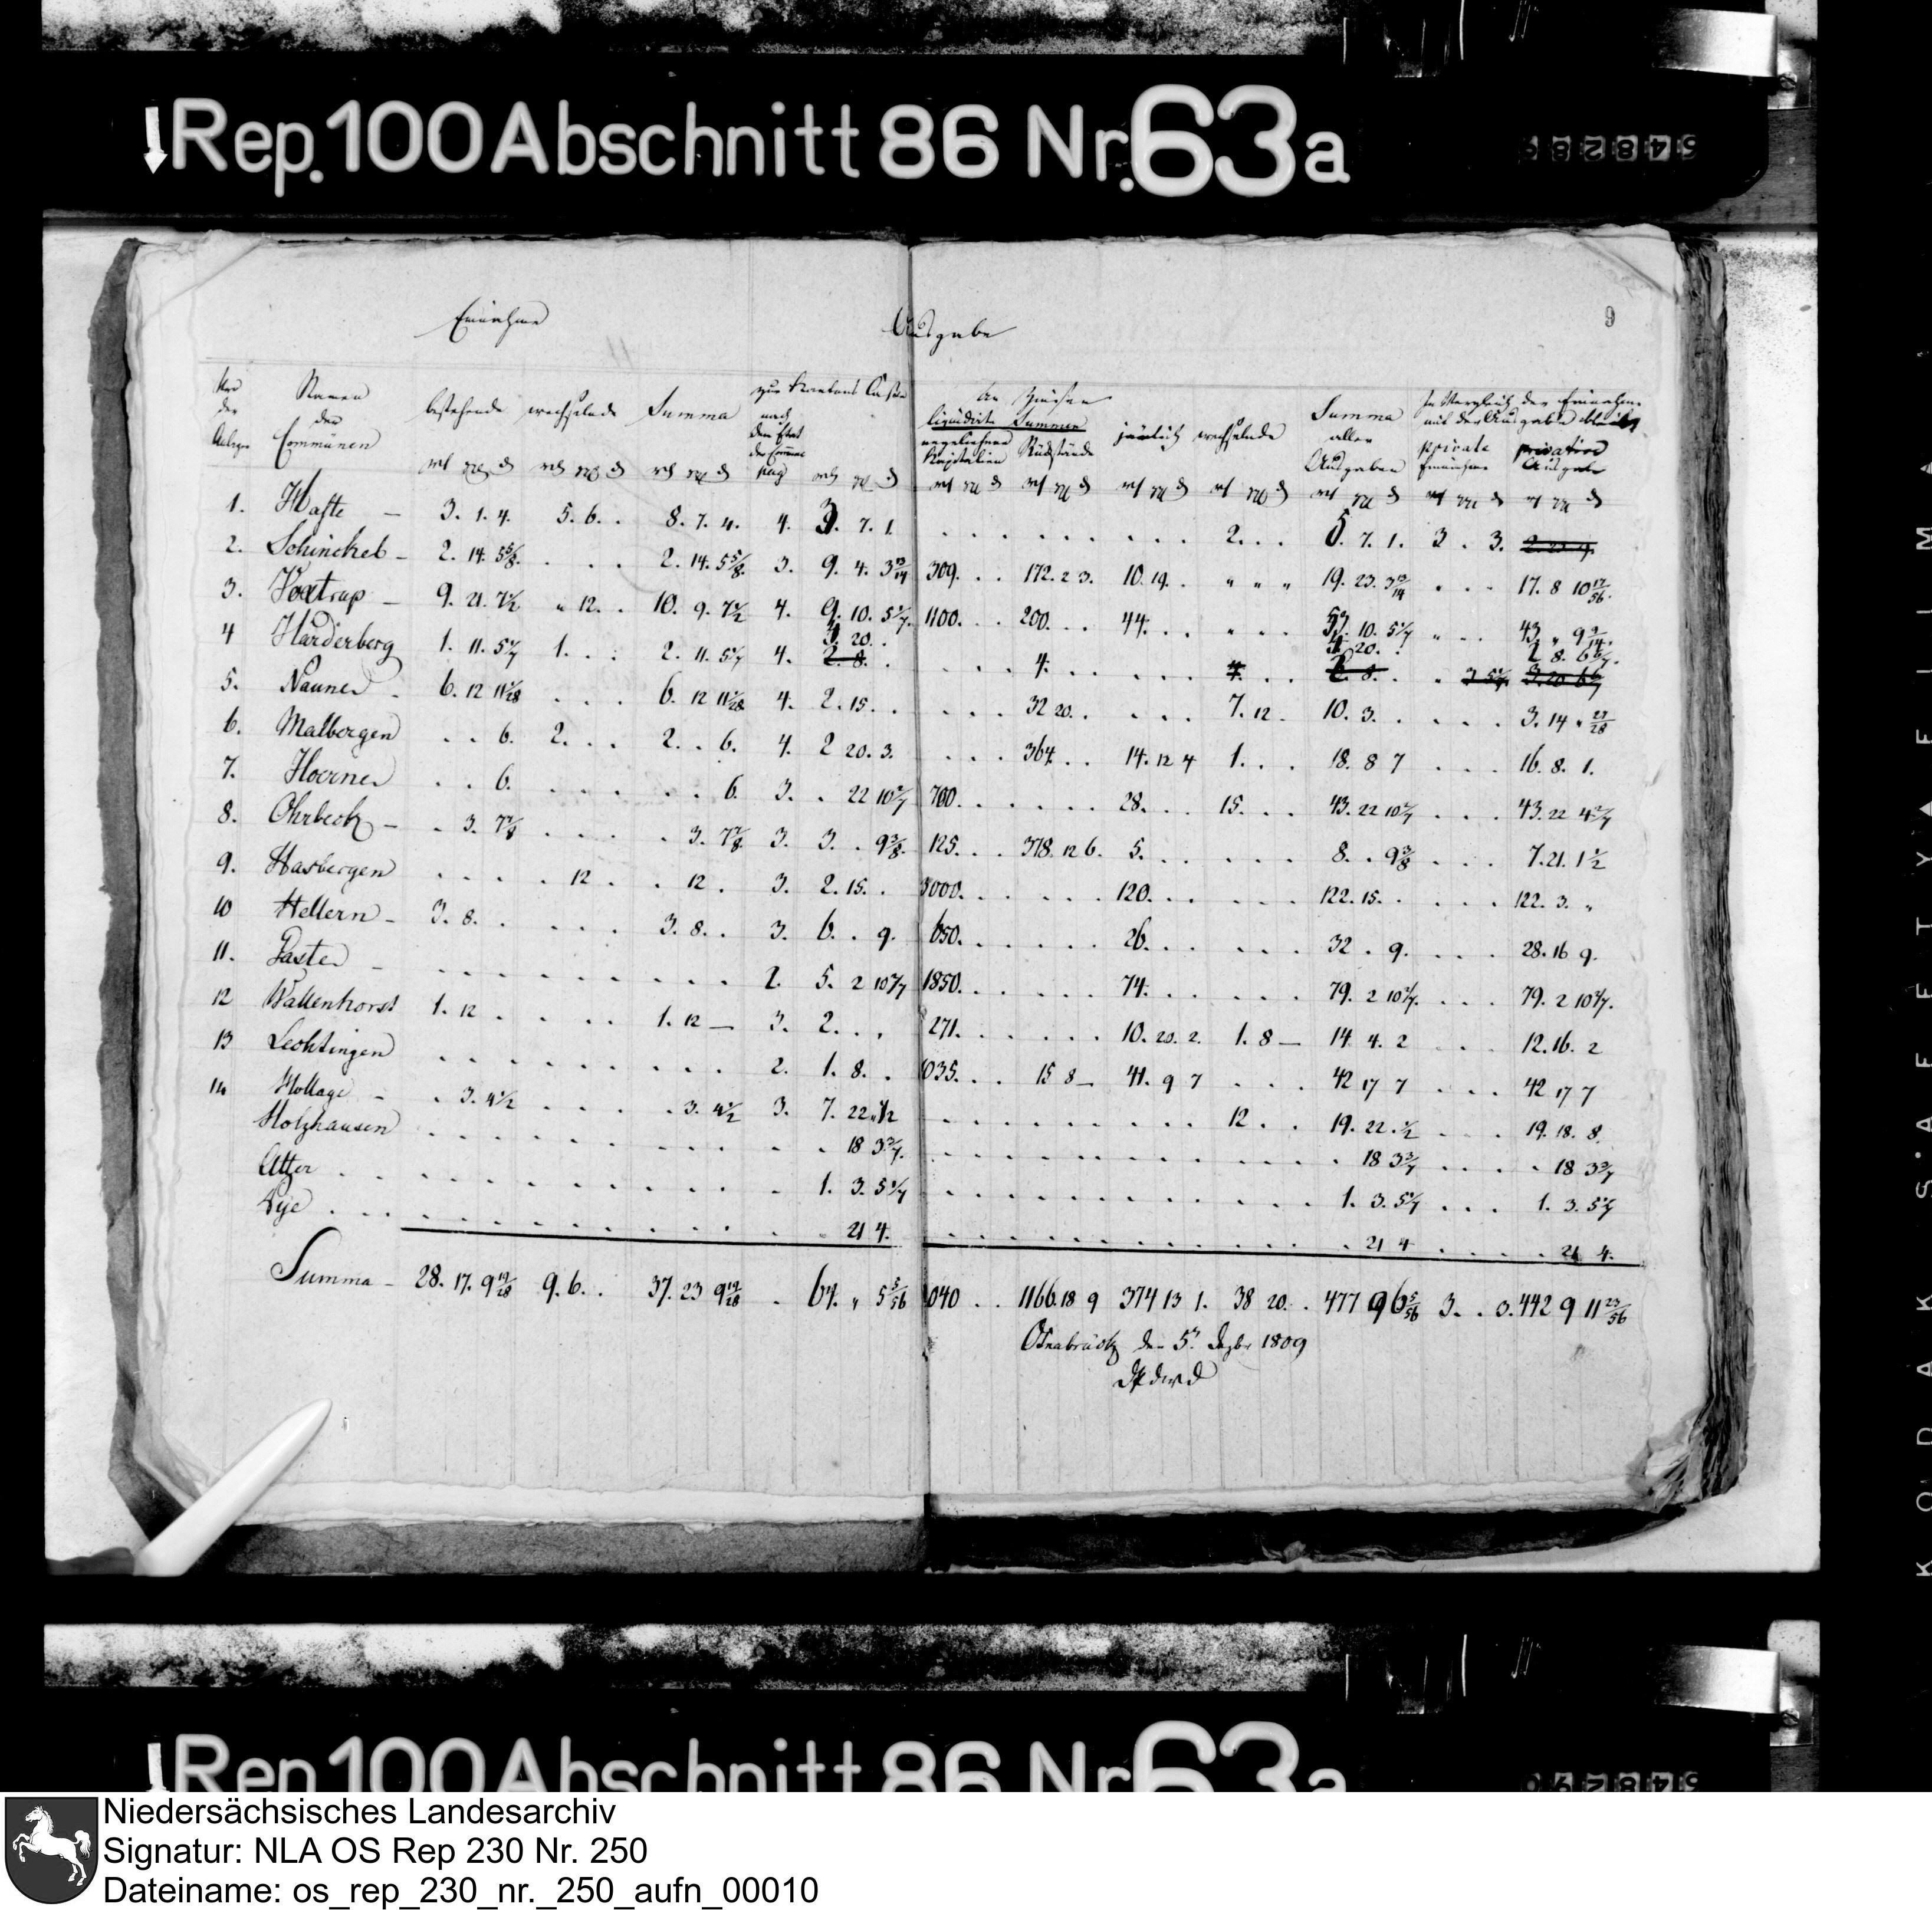 Rep. 100 Abschnitt 86 Nr. 63a
9
Einnahme Ausgabe
Namen der Communen
bestehende wechselnde Summa
zur Kantons Casse
nach dem Etat der Commune pag
an Zinsen
liquidirte Summen
angeliehene Kapitalien Rückstände
jährlich wechselnde
Summa aller Ausgaben
im Vergleich der Einnahme mit der Ausgabe bleibt
private Einnahme
privative Ausgabe
1. Haste – 3. 1. 4. 5. 6. . 8. 7. 4. 4. 3. 7. 1. 2. . . 5. 7. 1. 3 . 3.
2. Schinckel – 2. 14. 5 5/8. . . . 2. 14. 5 5/8. 3. 9. 4. 3 13/14 309. . . 172. 23. 10. 19. . " " " 19. 23. 3 13/14 . . . 17. 8 10 17/56.
3. Voxtrup – 9. 21. 7 1/2 " 12. . 10. 9. 7 1/2 4. 9. 10. 5 1/7. 1100. . . 200. . . 44. . . 53. 10. 5 1/7 " . . 43 " 9 9/14.
4 Harderberg 1. 11. 5 1/7 1. . . 2. 11. 5 1/7 4. 20. . 4. 20. 2. 8. 6 6/7.
5. Naune – 6. 12 11 1/28 . . . 6. 12 11 1/28 4. 2. 15. . . . . 32 20. . . . . 7. 12. 10. 3. . . . . 3. 14 " 27/28
6. Malbergen . . 6. 2. . . 2. . 6. 4. 2 20. 3. . . . 364. . . 14. 12 4 1. . . 18. 8 7 . . . 16. 8. 1.
7. Hoerne . . 6. . . . . . 6. 3. . 22 10 2/7 700. . . . . . 28. . . 15. . . 43. 22 10 2/7 . . . 43. 22 4 2/7
8. Ohrbeck – . 3. 7 7/8 . . . . 3. 7 7/8. 3. 3. . 9 3/8. 125. . . 378. 12 6. 5. . . . . . 8. . 9 3/8 . . . 7. 21. 1 1/2
9. Hasbergen . . . . 12 . . 12 . 3. 2. 15. . 3000. . . . . . 120. . . . . . 122. 15. . . . . 122. 3. "
10 Hellern – 3. 8. . . . . 3. 8. . 3. 6. . 9. 650. . . . . . 26. . . . . . 32 . 9. . . . 28. 16 9.
11. Gaste – . . . . . . . . . 2. 5. 2 10 2/7 1850. . . . . . 74. . . . . . 79. 2 10 2/7. . . . 79. 2 10 2/7.
12 Wallenhorst 1. 12 . . . . 1. 12 — 3. 2. . , 271. . . . . . 10. 20. 2. 1. 8 — 14. 4. 2 . . . 12. 16. 2
13 Lechtingen . . . . . . . . . 2. 1. 8. . 1035. . . 15 8 — 41. 9 7 . . . 42 17 7 . . . 42 17 7
14 Hollage – . 3. 4 1/2 . . . . 3. 4 1/2 3. 7. 22. 1/2 . . . . . . . . . 12 . . 19. 22. 1/2 . . . 19. 18. 8.
Holzhausen . . . . . . . . . . 18 3 3/7. . . . . . . . . . . . . . 18 3 3/7 . . . . 18 3 3/7
Atter . . . . . . . . . . 1. 3. 5 1/7 . . . . . . . . . . . . 1. 3. 5 1/7 . . . 1. 3. 5 1/7
Pye . . . . . . . . . . . 21 4. . . . . . . . . . . . . . 21 4 . . . . 21 4.
Summa – 28. 17. 9 19/28 9. 6. . 37. 23 9 19/28 . 67. " 5 5/56 040 . . 1166. 18 9 374 13 1. 38 20. . 477 9 6 5/56 3. . 3. 442 9 11 23/56
Osnabrück den 5n Dezbr 1809
Niedersächsisches Landesarchiv
Signatur: NLA OS Rep 230 Nr. 250
Dateiname: os_rep_230_nr._250_aufn_00010